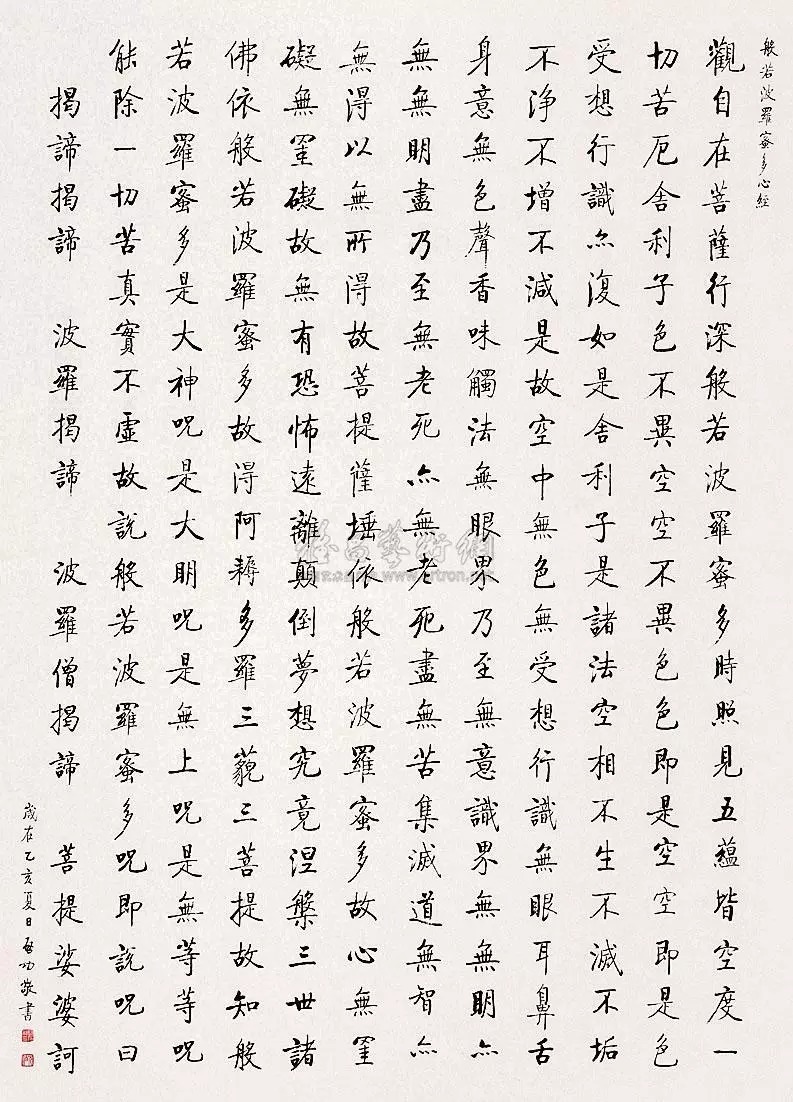 般若波羅蜜多心經
觀自在菩薩行深般若波羅蜜多時照見五蘊皆空度一
切苦厄舍利子色不異空空不異色色即是空空即是色
受想行識亦復如是舍利子是諸法空相不生不滅不垢
不淨不增不減是故空中無色無受想行識無眼耳鼻舌
身意無色聲香味觸法無眼界乃至無意識界無無明亦
無無明盡乃至無老死亦無老死盡無苦集滅道無智亦
無得以無所得故菩提薩埵依般若波羅蜜多故心無罣
礙無罣礙故無有恐怖遠離顛倒夢想究竟涅槃三世諸
佛依般若波羅蜜多故得阿耨多羅三藐三菩提故知般
若波羅蜜多是大神咒是大明咒是無上咒是無等等咒
能除一切苦真實不虛故說般若波羅蜜多咒即說咒曰
揭諦揭諦 波羅揭諦 波羅僧揭諦 菩提娑婆訶
歲在乙亥夏日啟功敬書
雅昌藝術網